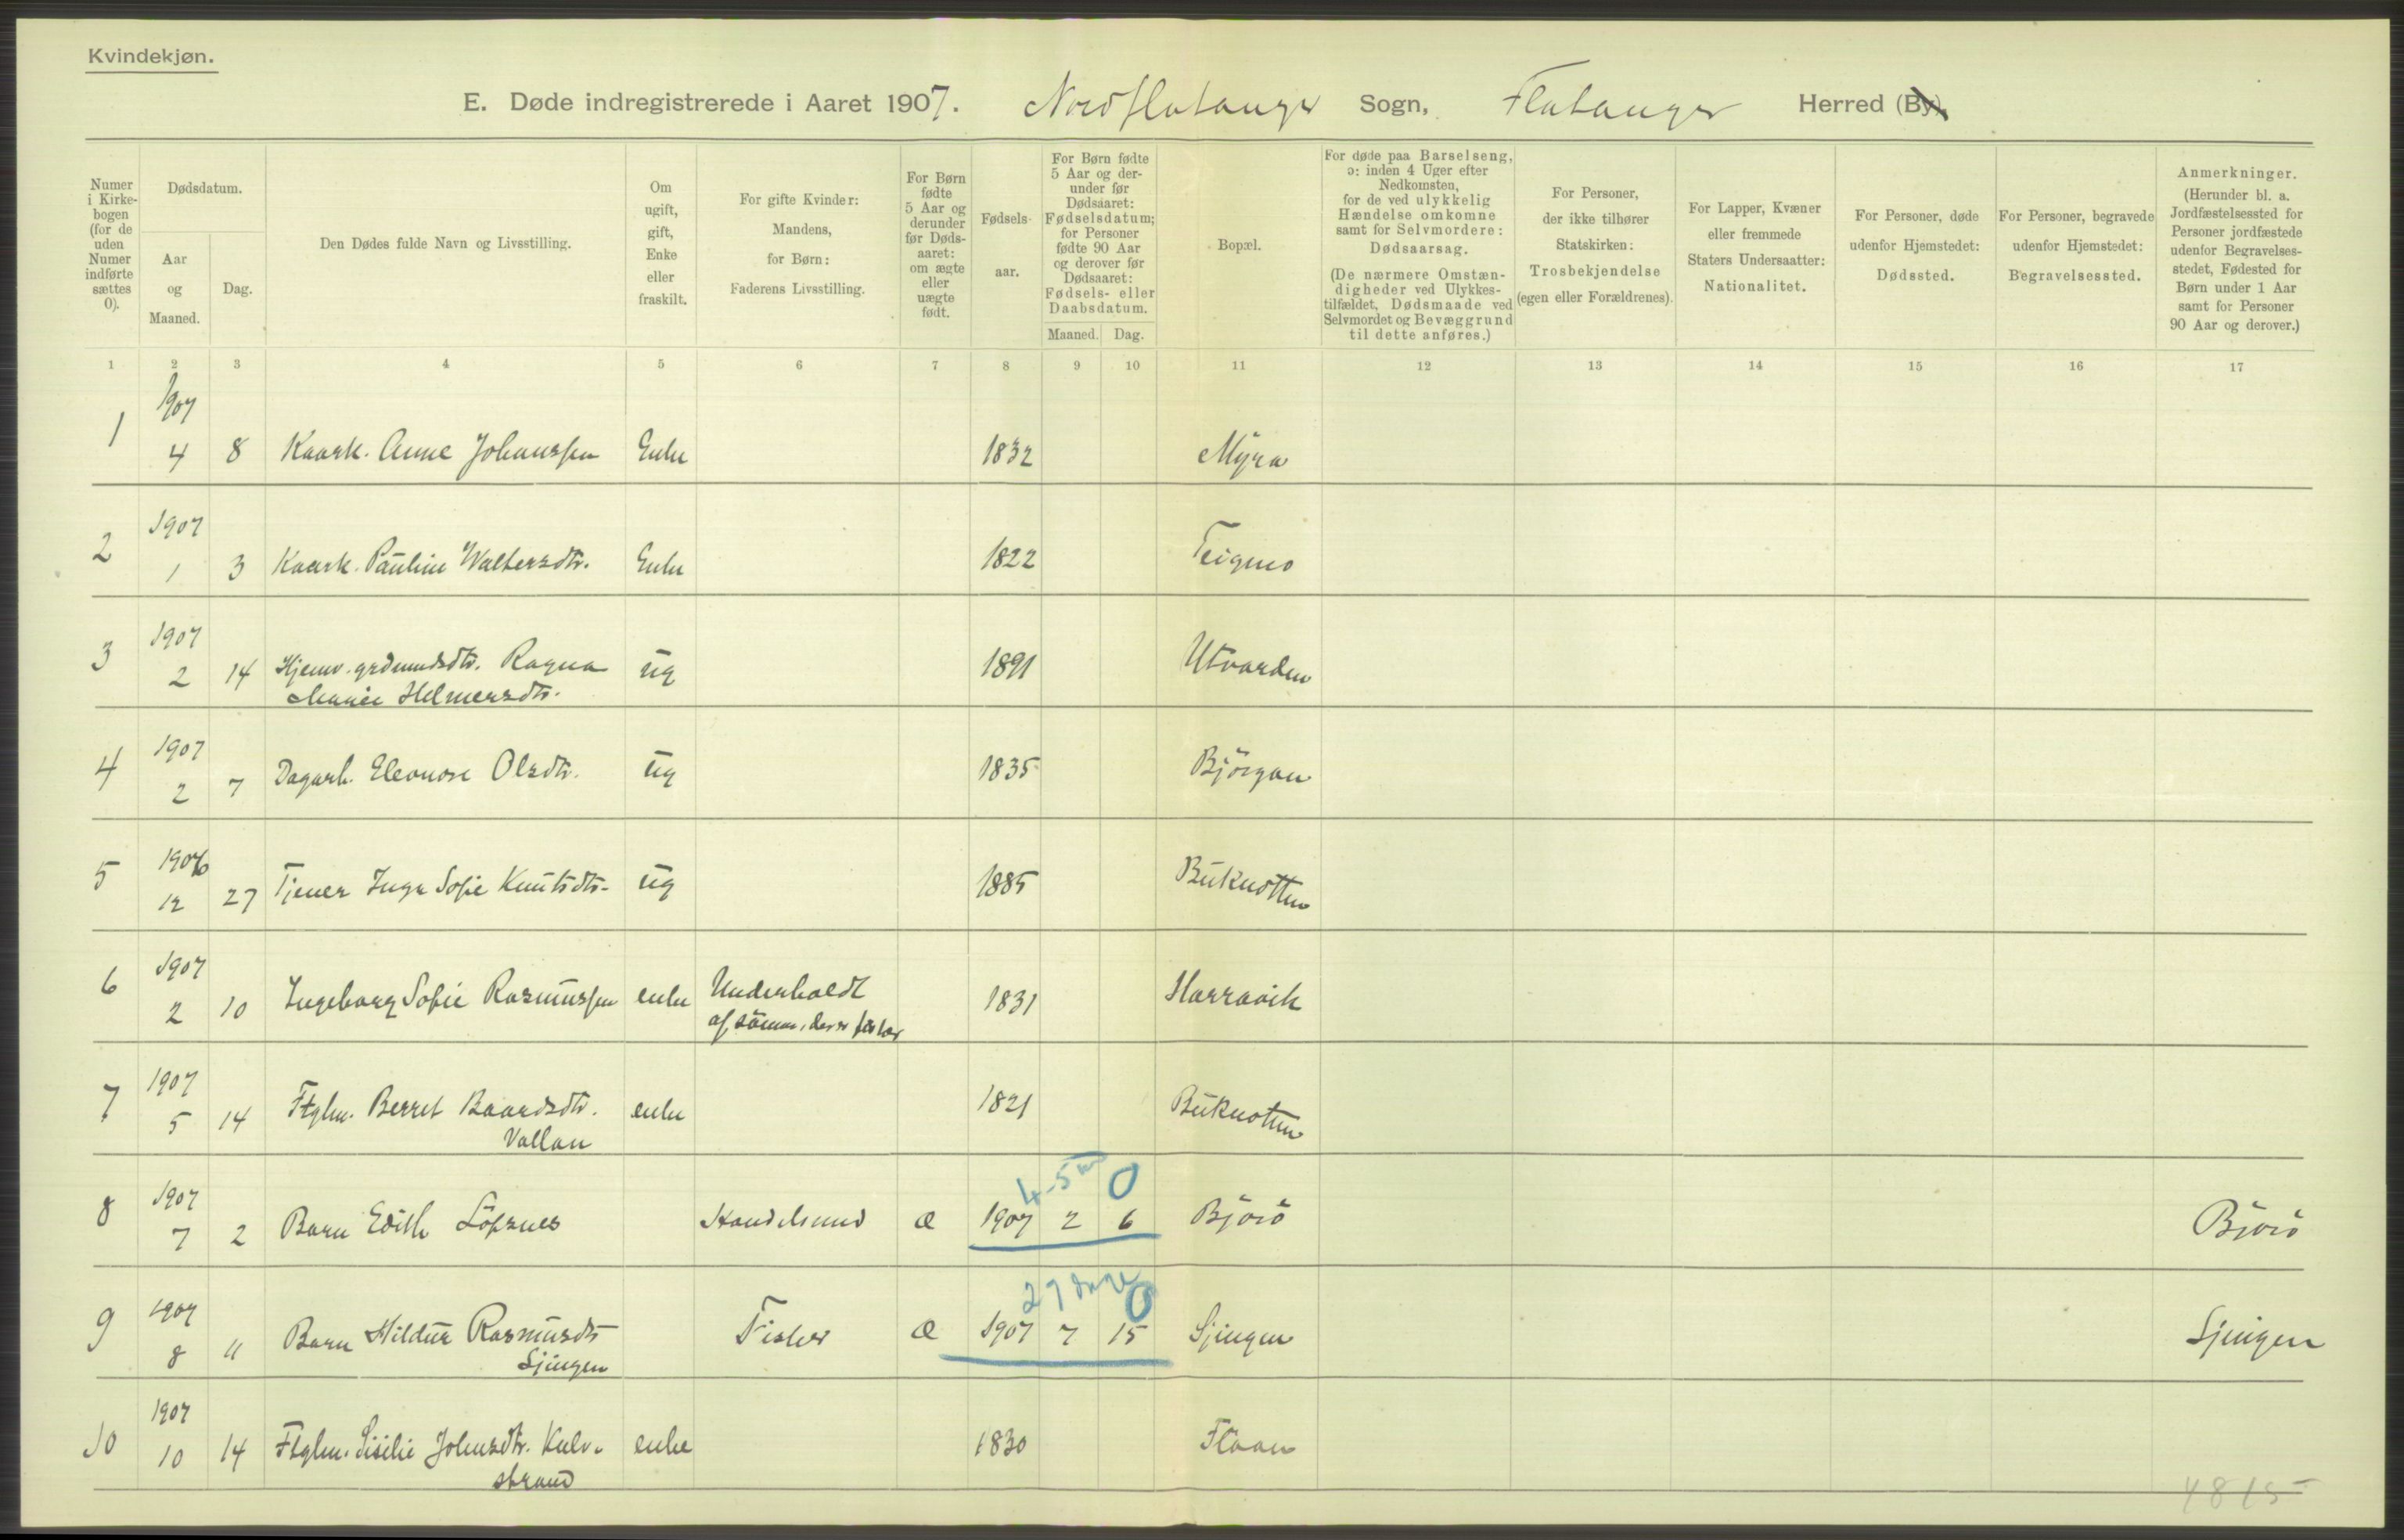 Kvindekjøn.
E. Døde indregistrerede i Aaret 1907. Nordflatanger Sogn, Flatanger Herred (By).
Numer i Kirkebogen (for de uden Numer indførte sættes 0).
Dødsdatum.
Aar og Maaned.
Dag.
Den Dødes fulde Navn og Livsstilling.
Om ugift, gift, Enke eller fraskilt.
For gifte Kvinder: Mandens, for Børn: Faderens Livsstilling.
For Børn fødte 5 Aar og derunder før Dødsaaret: om ægte eller uægte født.
Fødselsaar.
For Børn fødte 5 Aar og derunder før Dødsaaret: Fødselsdatum; for Personer fødte 90 Aar og derover før Dødsaaret: Fødsels- eller Daabsdatum.
Maaned. Dag.
Bopæl.
For døde paa Barselseng, ɔ: inden 4 Uger efter Nedkomsten, for de ved ulykkelig Hændelse omkomne samt for Selvmordere: Dødsaarsag.
(De nærmere Omstændigheder ved Ulykkestilfældet, Dødsmaade ved Selvmordet og Bevæggrund til dette anføres.)
For Personer, der ikke tilhører Statskirken: Trosbekjendelse (egen eller Forældrenes).
For Lapper, Kvæner eller fremmede Staters Undersaatter: Nationalitet.
For Personer, døde udenfor Hjemstedet: Dødssted.
For Personer, begravede udenfor Hjemstedet: Begravelsessted.
Anmerkninger.
(Herunder bl. a. Jordfæstelsessted for Personer jordfæstede udenfor Begravelsesstedet, Fødested for Børn under 1 Aar samt for Personer 90 Aar og derover.)
1 2 3 4 5 6 7 8 9 10 11 12 13 14 15 16 17
1 1907 4 8 Kaark. Anne Johanssen Enke 1832 Myra
2 1907 1 3 Kaark. Pauline Waltersdtr. Enke 1822 Teigmo
3 1907 2 14 Hjemv. grdmandsdtr. Ragna ug 1891 Utvorden
Marie Helmersdtr.
4 1907 2 7 Dagarb. Eleonore Olsdtr. ug 1835 Bjørgan
5 1906 12 27 Tjener Inga Sofie Knutsdtr. ug 1885 Buknotten
6 1907 2 10 Ingeborg Sofie Rasmussen enke Underholdt 1831 Harravik
af sønnen, der er
7 1907 5 14 Ftglm. Berret Baardsdtr. enke 1821 Buknotten
Vallan
4-5 0
8 1907 7 2 Barn Edith Löfsnes Handelsmd Æ 1907 2 6 Björö Björö
27 dage 0
9 1907 8 11 Barn Hildur Rasmusdtr Fisker Æ 1907 7 15 Sjingen Sjingen
Sjingen
10 1907 10 14 Ftglm. Sisilie Johnsdtr. Kulv- enke 1830 Flaan
strand
4815